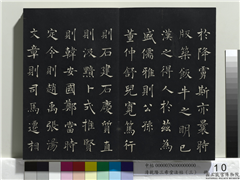 於降虜斯亦曩時
版築飯牛之明已
漢之得人於茲為
盛儒雅則公孫
董仲舒兒寬篤行
則石建石慶質直
則汲黯卜式推賢
則韓安國鄭當時
定令則趙禹張湯
文章則司馬遷相
10